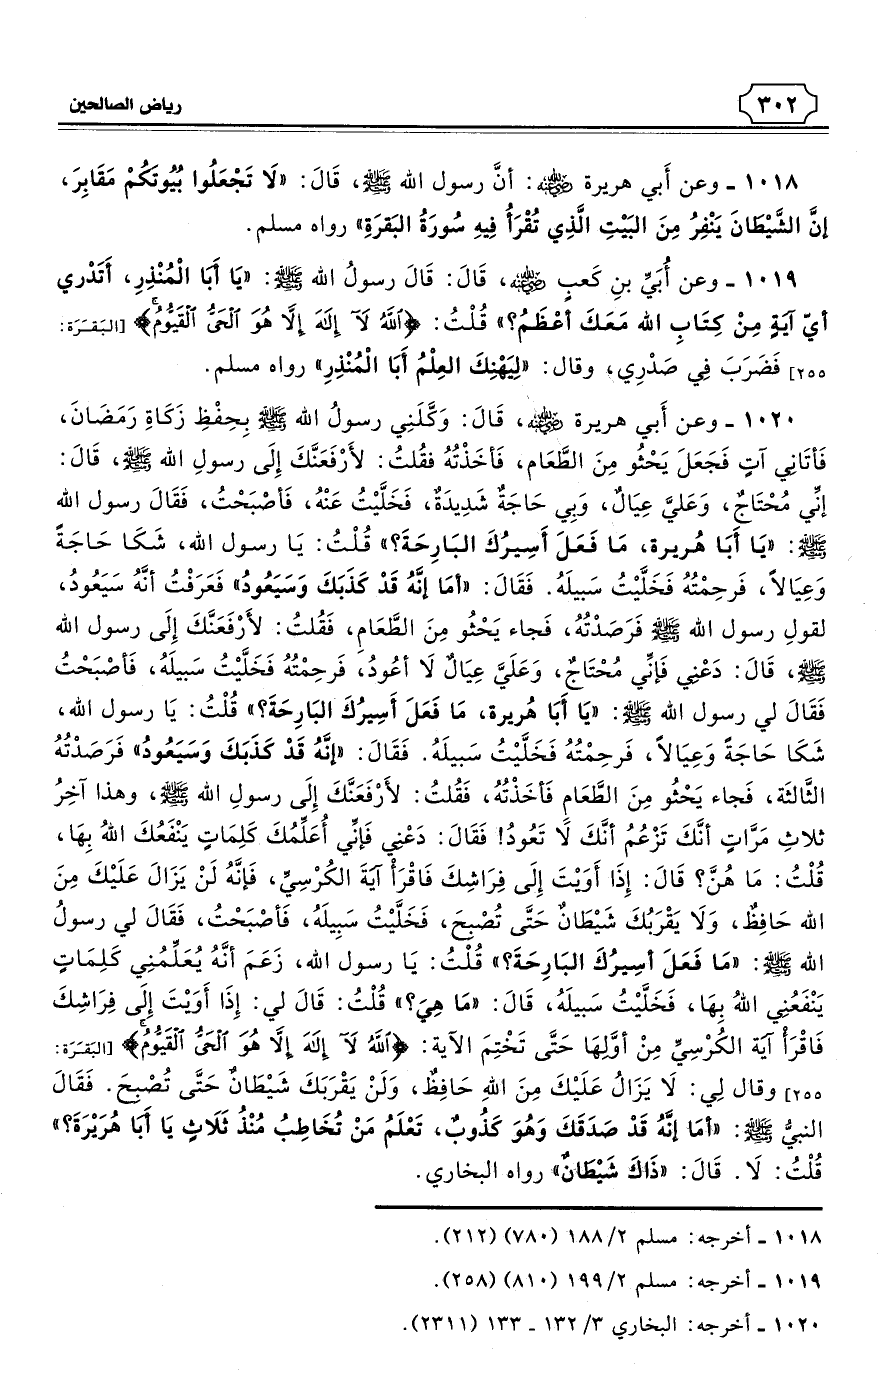 ٣٠٢
رياض الصالحين
١٠١٨ - وعن أَبي هريرة ﵁: أنَّ رسول الله ﷺ، قَالَ: «لَا تَجْعَلُوا بُيُوتَكُمْ مَقَابِرَ،
إنَّ الشَّيْطَانَ يَنْفِرُ مِنَ البَيْتِ الَّذِي تُقْرَأُ فِيهِ سُورَةُ البَقرَةِ» رواه مسلم.
١٠١٩ - وعن أُبَيِّ بنِ كَعبٍ ﵁، قَالَ: قَالَ رسولُ الله ﷺ: «يَا أَبَا الْمُنْذِرِ، أَتَدْري
أيّ آيَةٍ مِنْ كِتَابِ الله مَعَكَ أعْظَمُ؟» قُلْتُ: ﴿ٱللَّهُ لَآ إِلَٰهَ إِلَّا هُوَ ٱلْحَىُّ ٱلْقَيُّومُۚ﴾ [البَقَرَة:
٢٥٥] فَضَرَبَ فِي صَدْرِي، وقال: «لِيَهْنِكَ العِلْمُ أَبَا الْمُنْذِرِ» رواه مسلم.
١٠٢٠ - وعن أَبي هريرة ﵁، قَالَ: وَكَّلَنِي رسولُ الله ﷺ بِحِفْظِ زَكَاةِ رَمَضَانَ،
فَأتَانِي آتٍ فَجَعَلَ يَحْثُو مِنَ الطَّعَامِ، فَأخَذْتُهُ فقُلتُ: لأَرْفَعَنَّكَ إِلَى رسولِ الله ﷺ، قَالَ:
إنِّي مُحْتَاجٌ، وَعَليَّ عِيَالٌ، وَبِي حَاجَةٌ شَدِيدَةٌ، فَخَلَّيْتُ عَنْهُ، فَأصْبَحْتُ، فَقَالَ رسول الله
ﷺ: «يَا أَبَا هُريرة، مَا فَعَلَ أَسِيرُكَ البَارِحَةَ؟» قُلْتُ: يَا رسول الله، شَكَا حَاجَةً
وَعِيَالاً، فَرحِمْتُهُ فَخَلَّيْتُ سَبيلَهُ. فَقَالَ: «أمَا إنَّهُ قَدْ كَذَبَكَ وَسَيَعُودُ» فَعَرَفْتُ أنَّهُ سَيَعُودُ،
لقولِ رسول الله ﷺ فَرَصَدْتُهُ، فَجاء يَحْثُو مِنَ الطَّعَامِ، فَقُلتُ: لأَرْفَعَنَّكَ إِلَى رسول الله
ﷺ، قَالَ: دَعْنِي فَإنِّي مُحْتَاجٌ، وَعَلَيَّ عِيَالٌ لَا أعُودُ، فَرحِمْتُهُ فَخَلَّيْتُ سَبيلَهُ، فَأصْبَحْتُ
فَقَالَ لي رسول الله ﷺ: «يَا أَبَا هُريرة، مَا فَعَلَ أَسِيرُكَ البَارِحَةَ؟» قُلْتُ: يَا رسول الله،
شَكَا حَاجَةً وَعِيَالاً، فَرحِمْتُهُ فَخَلَّيْتُ سَبيلَهُ. فَقَالَ: «إنَّهُ قَدْ كَذَبَكَ وَسَيَعُودُ» فَرَصَدْتُهُ
الثَّالثَة، فَجاء يَحْثُو مِنَ الطَّعَامِ فَأخَذْتُهُ، فَقُلتُ: لأَرْفَعَنَّكَ إِلَى رسولِ الله ﷺ، وهذا آخِرُ
ثلاثِ مَرَّاتٍ أنَّكَ تَزْعُمُ أنَّكَ لَا تَعُودُ! فَقَالَ: دَعْنِي فَإنِّي أُعَلِّمُكَ كَلِمَاتٍ يَنْفَعُكَ اللهُ بِهَا،
قُلْتُ: مَا هُنَّ؟ قَالَ: إِذَا أَوَيْتَ إِلَى فِرَاشِكَ فَاقْرَأْ آيَةَ الكُرْسِيِّ، فَإنَّهُ لَنْ يَزَالَ عَلَيْكَ مِنَ
الله حَافِظٌ، وَلَا يَقْرَبُكَ شَيْطَانٌ حَتَّى تُصْبِحَ، فَخَلَّيْتُ سَبِيلَهُ، فَأصْبَحْتُ، فَقَالَ لي رسولُ
الله ﷺ: «مَا فَعَلَ أسِيرُكَ البَارِحَةَ؟» قُلْتُ: يَا رسول الله، زَعَمَ أنَّهُ يُعَلِّمُنِي كَلِمَاتٍ
يَنْفَعُنِي اللهُ بِهَا، فَخَلَّيْتُ سَبيلَهُ، قَالَ: «مَا هِيَ؟» قُلْتُ: قَالَ لي: إِذَا أَوَيْتَ إِلَى فِرَاشِكَ
فَاقْرَأْ آيَةَ الكُرْسِيِّ مِنْ أوَّلِهَا حَتَّى تَخْتِمَ الآية: ﴿ٱللَّهُ لَآ إِلَٰهَ إِلَّا هُوَ ٱلْحَىُّ ٱلْقَيُّومُۚ﴾ [البَقَرَة:
٢٥٥] وقال لِي: لَا يَزَالُ عَلَيْكَ مِنَ اللهِ حَافِظٌ، وَلَنْ يَقْرَبَكَ شَيْطَانٌ حَتَّى تُصْبِحَ. فَقَالَ
النبيُّ ﷺ: «أمَا إنَّهُ قَدْ صَدَقَكَ وَهُوَ كَذُوبٌ، تَعْلَمُ مَنْ تُخَاطِبُ مُنْذُ ثَلَاثٍ يَا أَبَا هُرَيْرَةَ؟»
قُلْتُ: لَا. قَالَ: «ذَاكَ شَيْطَانٌ» رواه البخاري.
١٠١٨ - أخرجه: مسلم ٢/ ١٨٨ (٧٨٠) (٢١٢).
١٠١٩ - أخرجه: مسلم ٢/ ١٩٩ (٨١٠) (٢٥٨).
١٠٢٠ - أخرجه: البخاري ٣/ ١٣٢ - ١٣٣ (٢٣١١).